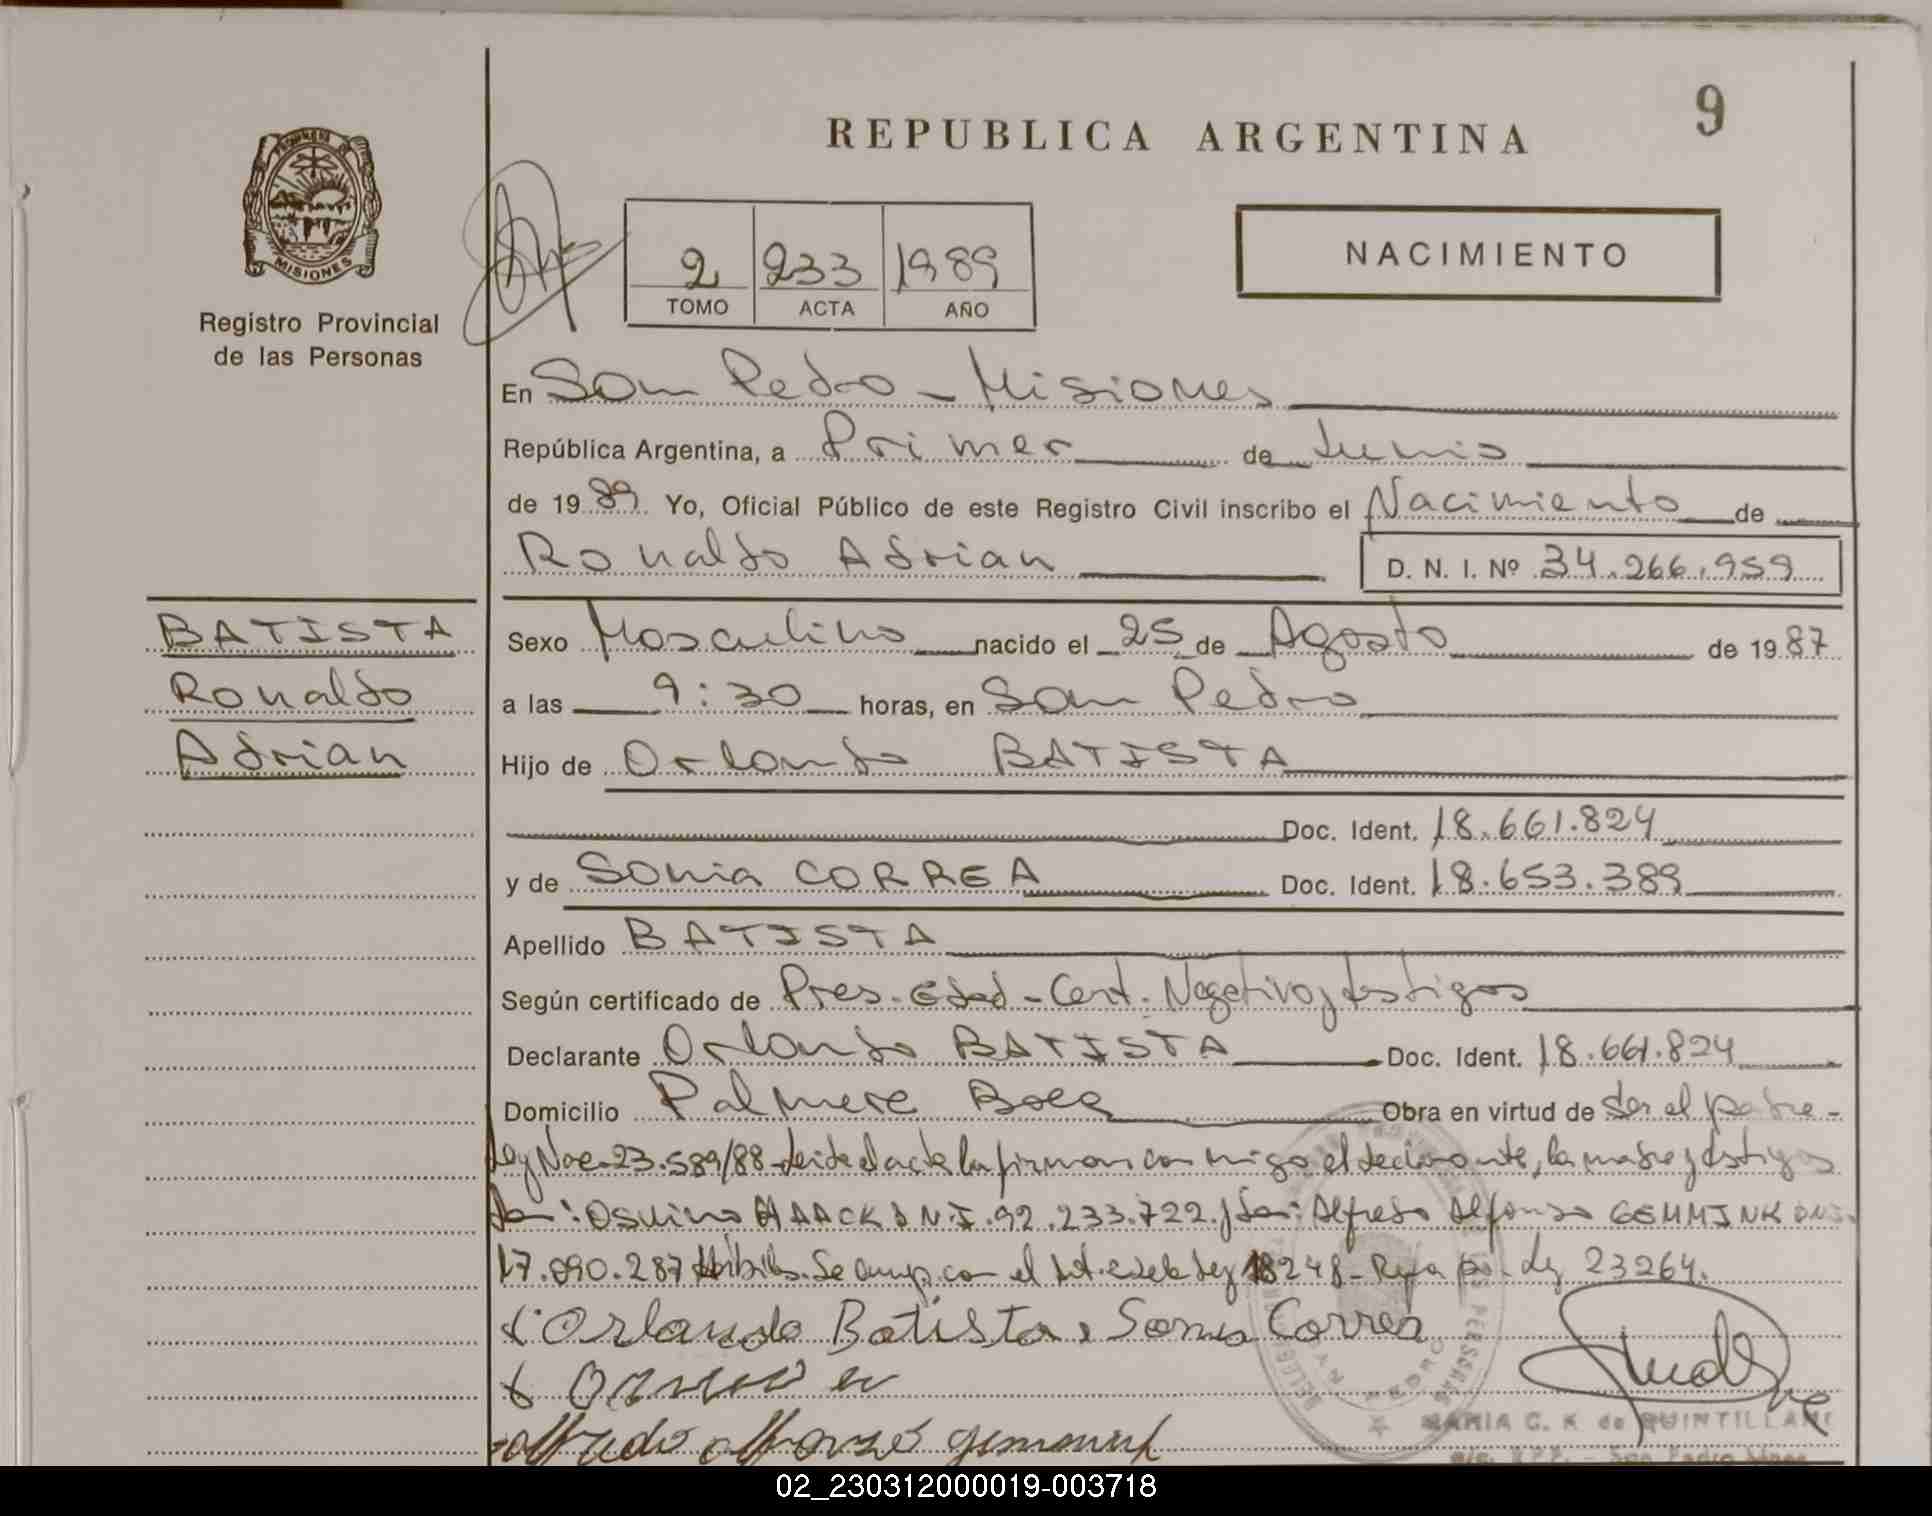 9
REPUBLICA ARGENTINA
PROVINCIA DE
MISIONES
Registro Provincial
de las Personas
2 233 1989
TOMO ACTA AÑO
NACIMIENTO
En San Pedro - Misiones
República Argentina, a Primer de Junio
de 1989 Yo, Oficial Público de este Registro Civil inscribo el Nacimiento de
Ronaldo Adrian D. N. I. Nº 34.266.959
BATISTA
Ronaldo
Adrian
Sexo Masculino nacido el 25 de Agosto de 1987
a las 9:30 horas, en San Pedro
Hijo de Orlando BATISTA
Doc. Ident. 18.661.824
y de Sonia CORREA Doc. Ident. 18.653.389
Apellido BATISTA
Según certificado de Pres. Edad - Cert. Negativo y testigos
Declarante Orlando BATISTA Doc. Ident. 18.661.824
Domicilio Palmera Boca Obra en virtud de ser el padre -
Ley Nac. 23.589/88 - leida el acta la firman conmigo el declarante, la madre y testigos
HAACK D N I. 92.233.722. y Alfredo Alfonso GEMMINK DNI.
17.090.287 Hábiles. Se cump. con el de la Ley 18248 - por Ley 23264.
Orlando Batista, Sonia Correa
Alfredo Alfonso
MARIA C. K. de QUINTILLAN
R.P.P. - San Pedro
02_230312000019-003718